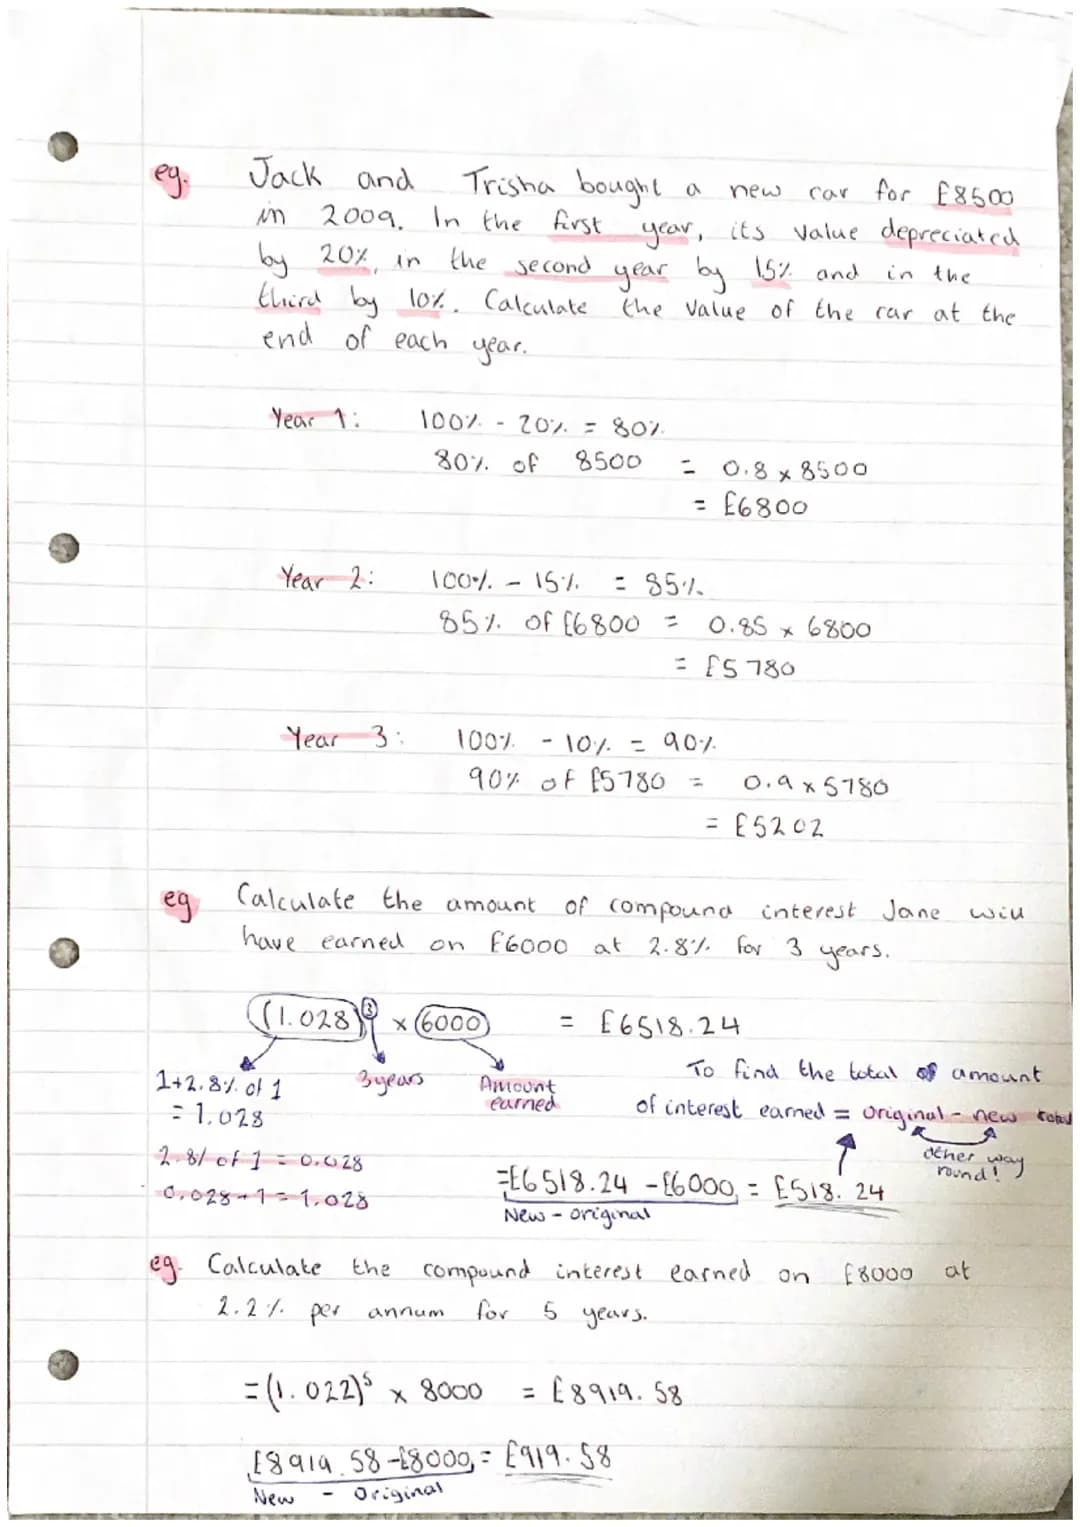 eg. Jack and Trisha bought a new car for £8500
in 2009. In the first year, its value depreciated
by 20%, in the second year by 15% and in the
third by 10%. Calculate the value of the car at the
end of each year.
Year 1: 100% - 20% = 80%
80% of 8500 = 0.8 x 8500
= £6800
Year 2: 100% - 15% = 85%
85% of £6800 = 0.85 x 6800
= £5780
Year 3: 100% - 10% = 90%
90% of £5780 = 0.9 x 5780
= £5202
eg Calculate the amount of compound interest Jane will
have earned on £6000 at 2.8% for 3 years.
(1.028)³ x 6000 = £6518.24
1+2.8% of 1
= 1.028
2.8% of 1 = 0.028
0.028+1 = 1.028
3 years
Amount
earned
To find the total of amount
of interest earned = original - new total
other way
round!
=£6518.24 - £6000 = £518.24
New - original
eg. Calculate the compound interest earned on £8000 at
2.2% per annum for 5 years.
=(1.022)⁵ x 8000 = £8919.58
£8919.58-£8000 = £919.58
New - Original